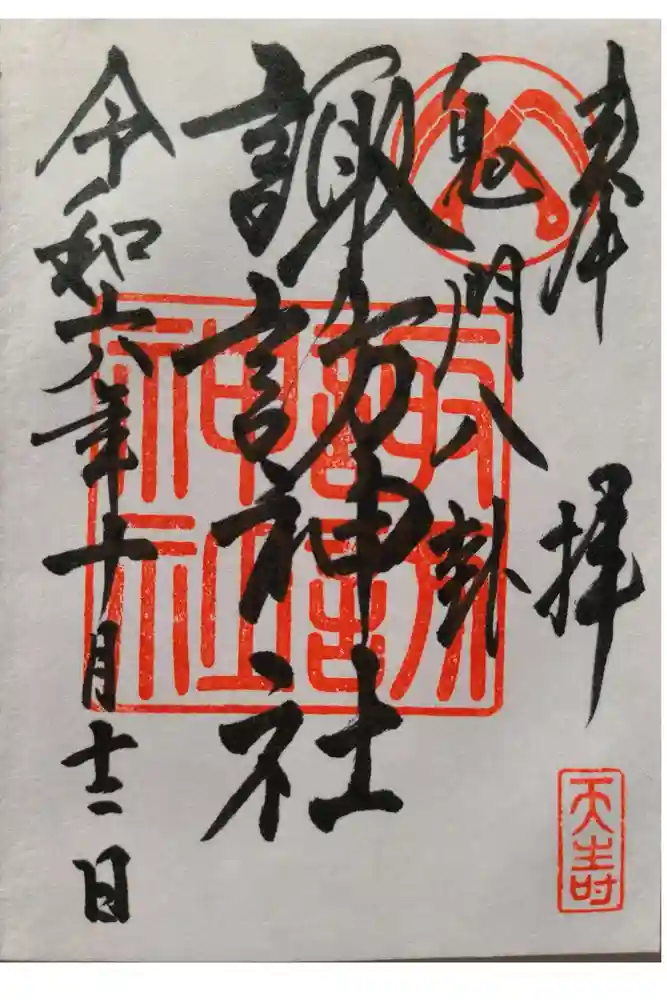 奉拝
鬼門八卦
諏訪神社
令和六年十月十二日
諏訪神社